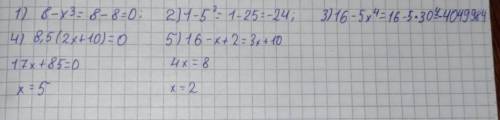 1) 8-x³=8-8=0; 2) 1-5²=1-25=-24; 3) 16-5x⁴=16-5·30⁴=-4049984
4) 8,5(2x+10)=0 5) 16-x+2=3x+10
17x+85=0 4x=8
x=5 x=2